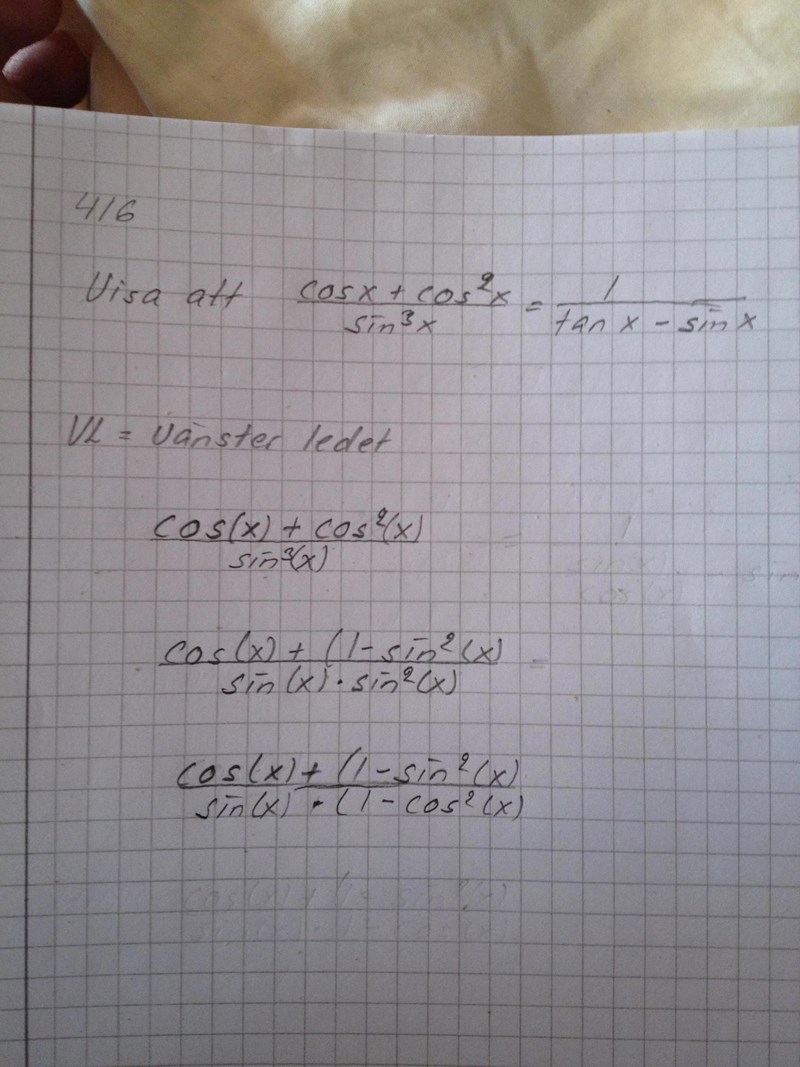 416
Visa att (cosx + cos²x)/(sin³x) = 1/(tan x - sin x)
VL = Vänster ledet
(cos(x) + cos²(x))/(sin³(x)) = 1/(sin(x)/cos(x) - sin
(cos(x) + (1-sin²(x))/(sin(x)·sin²(x)) =
(cos(x) + (1-sin²(x))/(sin(x)·(1-cos²(x))